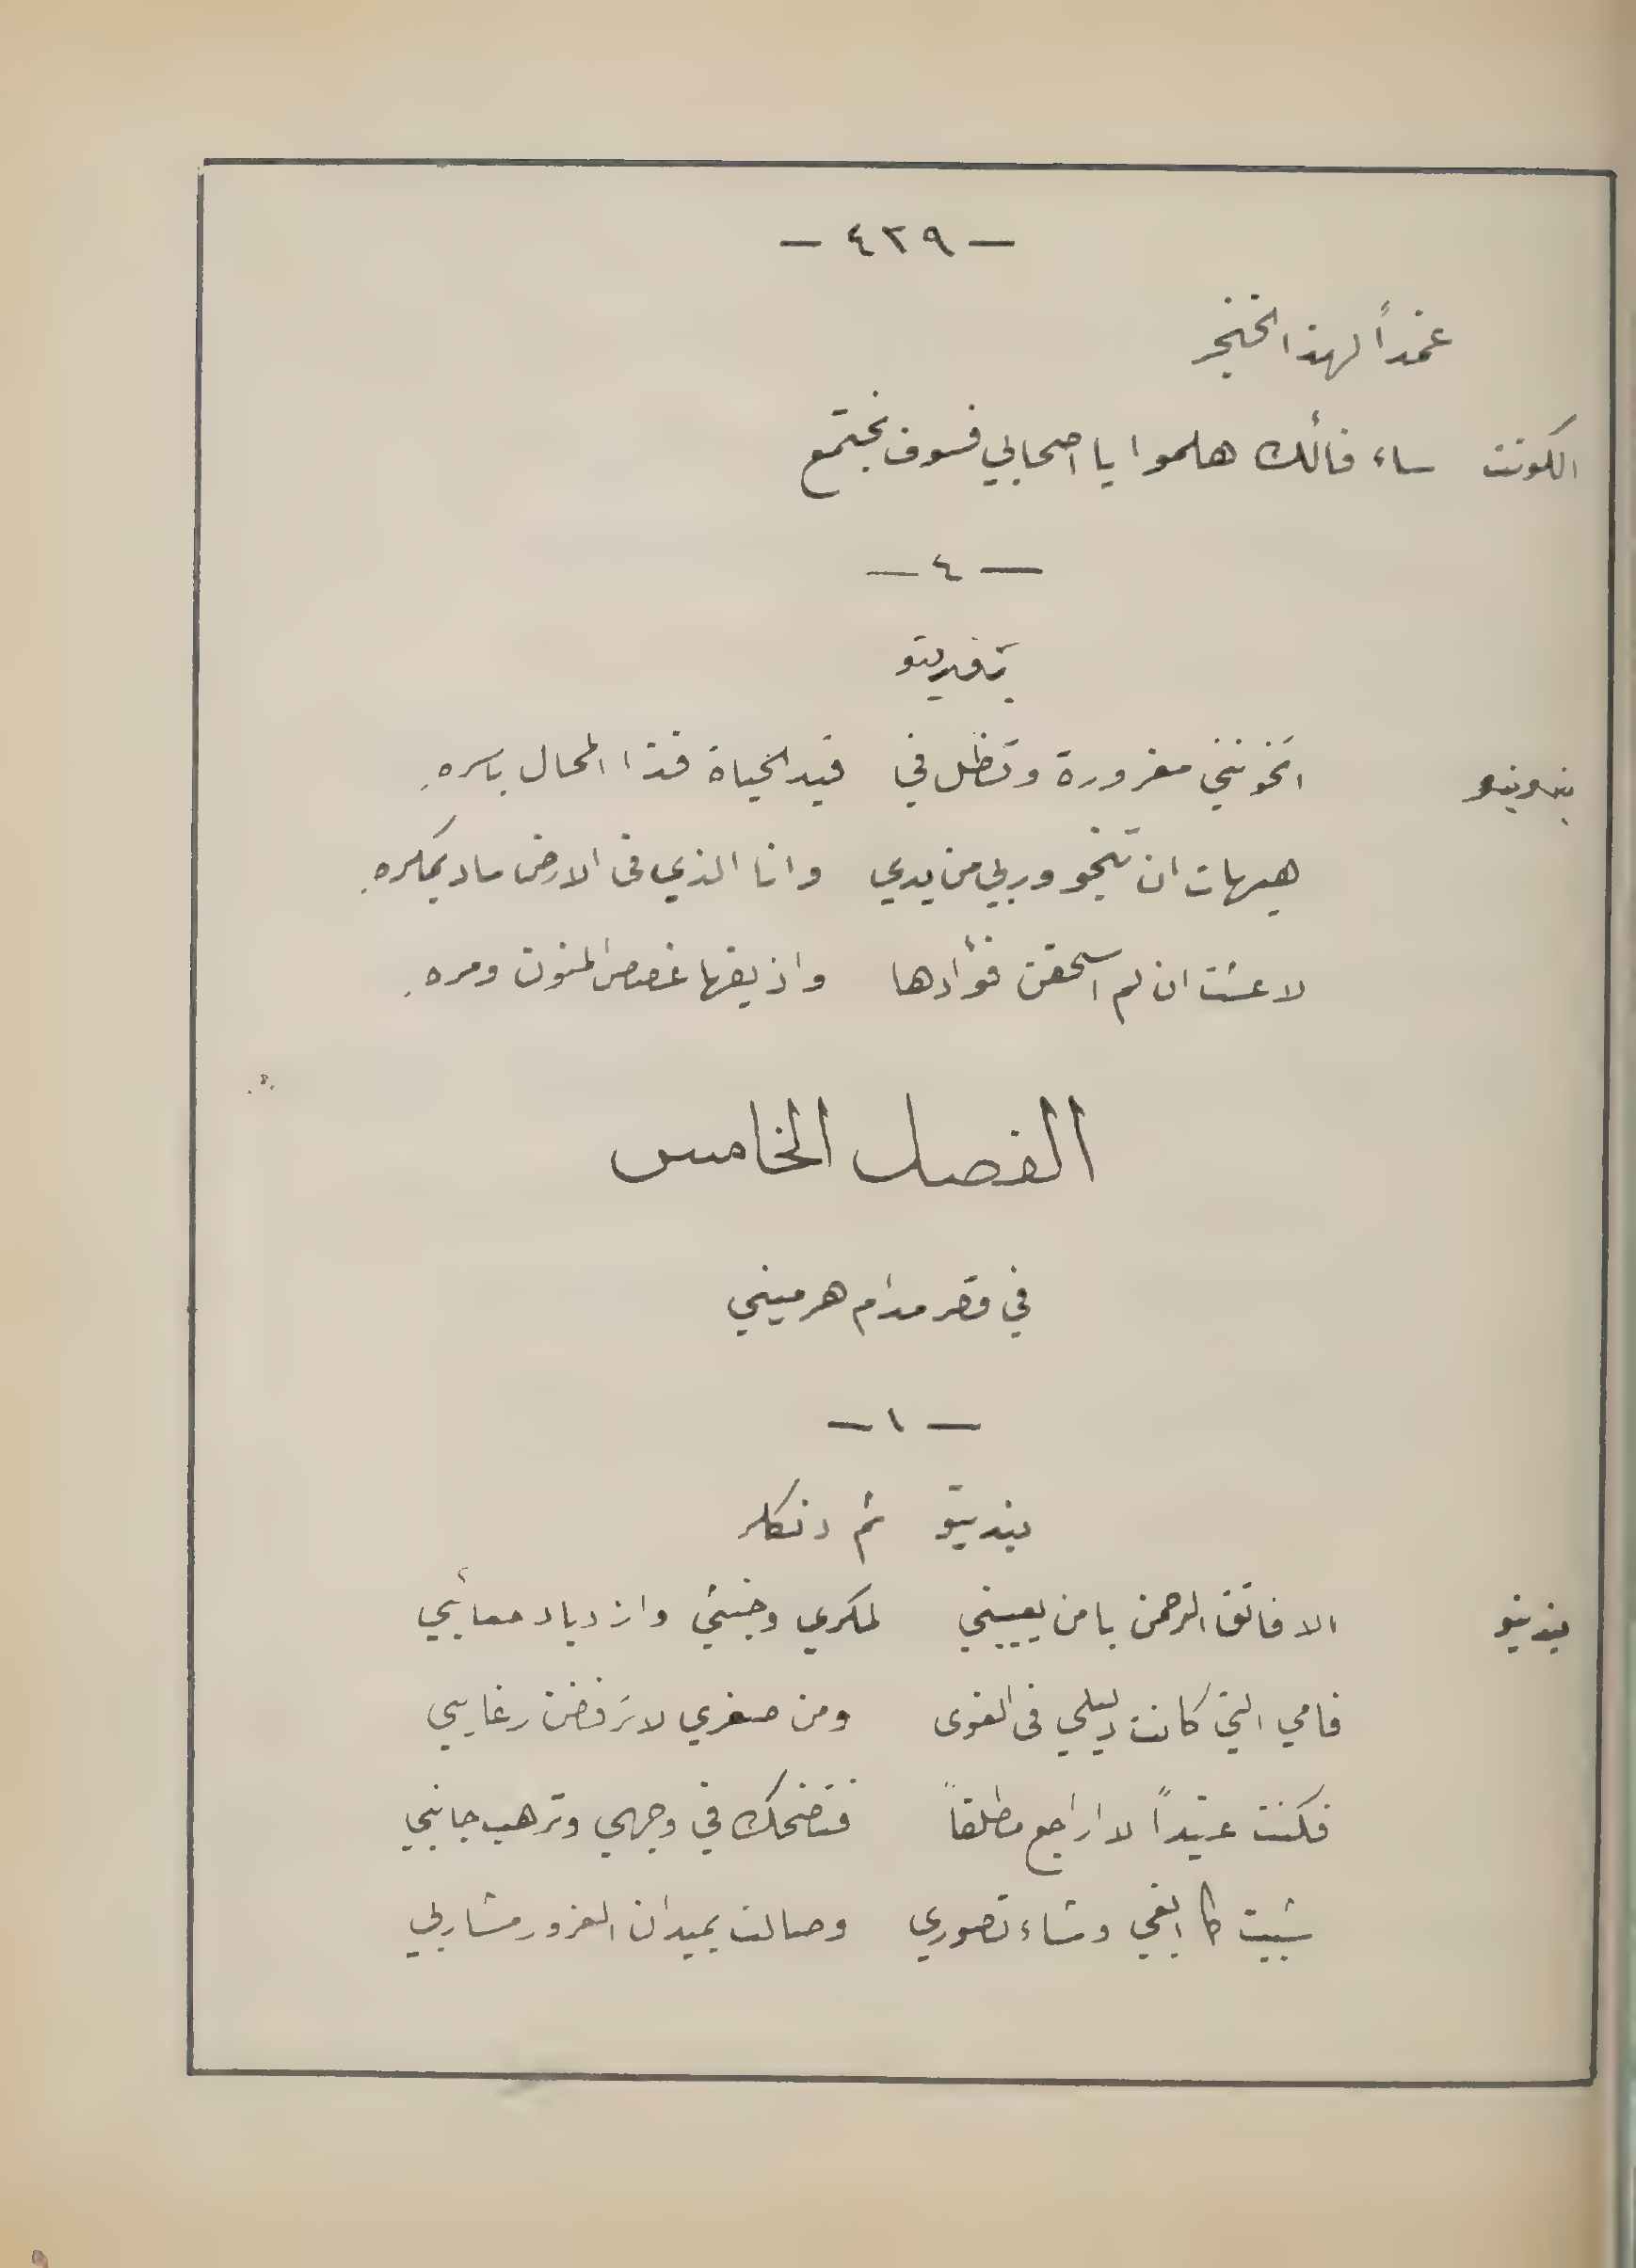 — ٤٣٩ —
غمداً لهذا الخنجر
الكونت ساء فألك هلموا يا اصحابي فسوف نجتمع
— ٤ —
بندنيتو
بندنيتو اتخونني مغرورة وتظل في قيد الحياة فذا المحال باسره
هيهات ان تنجو وربي من يدي وانا الذي فى الارض ساد بمكره
لا عشت ان لم اسحقن فؤادها واذيقها غصص المنون ومره
الفصل الخامس
في قصر مدام هرميني
— ١ —
بندنيتو ثم دنكلر
بندنيتو الا فاتق الرحمن يا من يعيبني لمكري وخبثي وازدياد معائبي
فامي التي كانت دليلي فى الغوى ومن صغري لا ترفضن رغايبي
فكنت عتيداً لا اراجع مطلقاً فتضحك في وجهي وترهب جانبي
شببت كما ابغي وشاء تصوري وصالت بميدان الغرور مشاربي